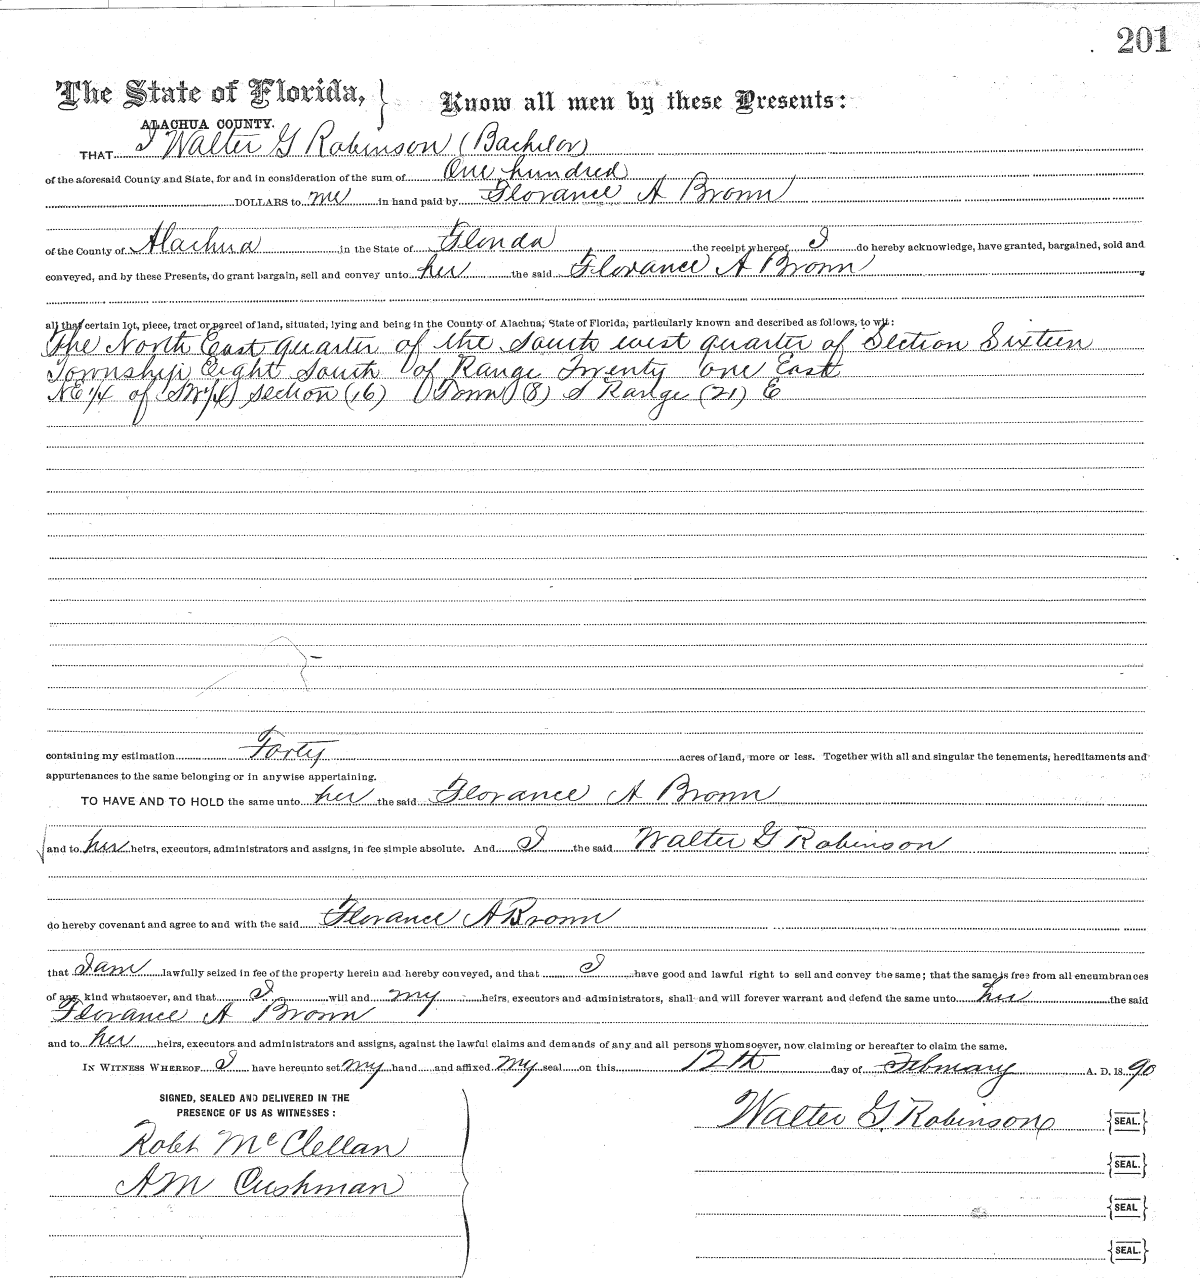 201
The State of Florida, } Know all men by these Presents:
ALACHUA COUNTY.
THAT I Walter G Robinson (Bachelor)
of the aforesaid County and State, for and in consideration of the sum of One hundred
DOLLARS to me in hand paid by Florance A Bronn
of the County of Alachua in the State of Florida, the receipt whereof I do hereby acknowledge, have granted, bargained, sold and
conveyed, and by these Presents, do grant bargain, sell and convey unto her the said Florance A Bronn
all that certain lot, piece, tract or parcel of land, situated, lying and being in the County of Alachua, State of Florida, particularly known and described as follows, to wit:
The North East quarter of the South west quarter of Section Sixteen
Township Eight South of Range Twenty one East
NE 1/4 of SW 1/4 section (16) Town (8) S Range (21) E
containing my estimation Forty acres of land, more or less. Together with all and singular the tenements, hereditaments and
appurtenances to the same belonging or in anywise appertaining.
TO HAVE AND TO HOLD the same unto her the said Florance A Bronn
and to her heirs, executors, administrators and assigns, in fee simple absolute. And I the said Walter G Robinson
do hereby covenant and agree to and with the said Florance A Bronn
that I am lawfully seized in fee of the property herein and hereby conveyed, and that I have good and lawful right to sell and convey the same; that the same is free from all encumbrances
of any kind whatsoever, and that I will and my heirs, executors and administrators, shall and will forever warrant and defend the same unto her the said
Florance A Bronn
and to her heirs, executors and administrators and assigns, against the lawful claims and demands of any and all persons whomsoever, now claiming or hereafter to claim the same.
IN WITNESS WHEREOF I have hereunto set my hand and affixed my seal on this 12th day of February A. D. 18 90
SIGNED, SEALED AND DELIVERED IN THE
PRESENCE OF US AS WITNESSES:
Walter G. Robinson {SEAL.}
Robt McClellan
{SEAL.}
A M Cushman
{SEAL}
{SEAL.}